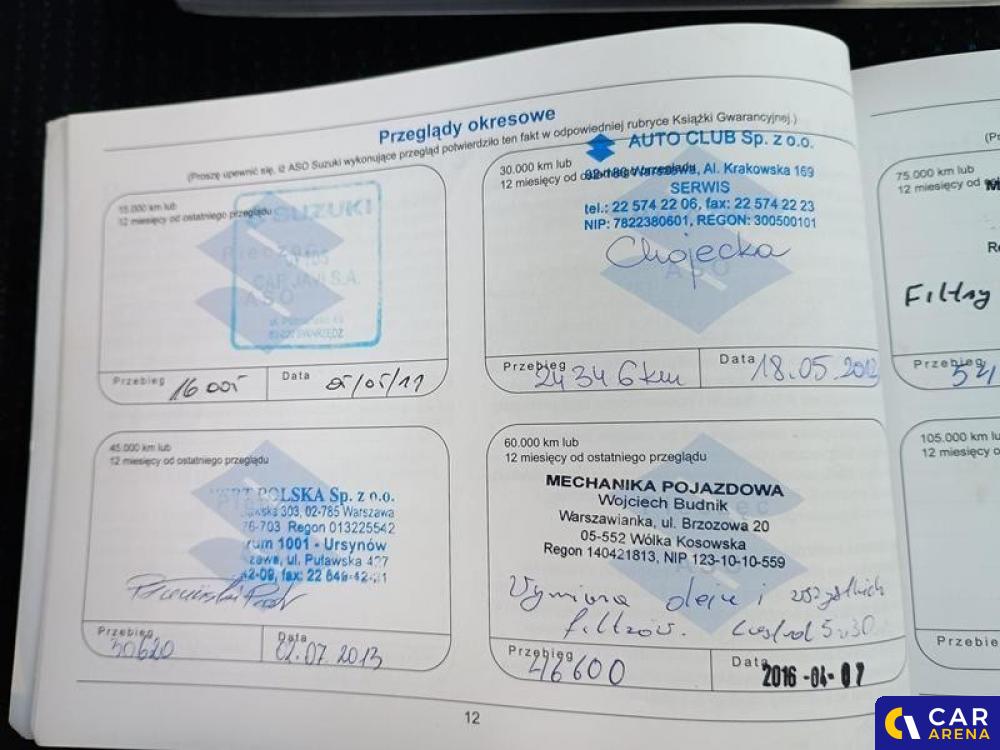 Przeglądy okresowe
(Proszę upewnić się, iż ASO Suzuki wykonujące przegląd potwierdziło ten fakt w odpowiedniej rubryce Książki Gwarancyjnej.)
15.000 km lub
12 miesięcy od ostatniego przeglądu
SUZUKI
CAR JAVI S.A.
ASO
SWARZĘDZ
Przebieg 16 005
Data 05/05/11
30.000 km lub
12 miesięcy od ostatniego przeglądu
AUTO CLUB Sp. z o.o.
Warszawa, Al. Krakowska 169
SERWIS
tel.: 22 574 22 06, fax: 22 574 22 23
NIP: 7822380601, REGON: 300500101
Chojecka
ASO
Przebieg 24346 km
Data 18.05.2012
45.000 km lub
12 miesięcy od ostatniego przeglądu
POLSKA Sp. z o.o.
303, 02-785 Warszawa
76-703 Regon 013225542
rum 1001 - Ursynów
zawa, ul. Puławska 427
42-09, fax: 22 649-42-21
Przebieg 30620
Data 02.07.2013
60.000 km lub
12 miesięcy od ostatniego przeglądu
MECHANIKA POJAZDOWA
Wojciech Budnik
Warszawianka, ul. Brzozowa 20
05-552 Wólka Kosowska
Regon 140421813, NIP 123-10-10-559
Wymiana oleju i wszystkich
filtrów. Castrol 5w30
Przebieg 46600
Data 2016-04-07
12
(P
75.000 km lub
12 miesięcy od
M
Re
Filtry
Przebieg
105.000 km lu
12 miesięcy o
Przebie
CAR
ARENA